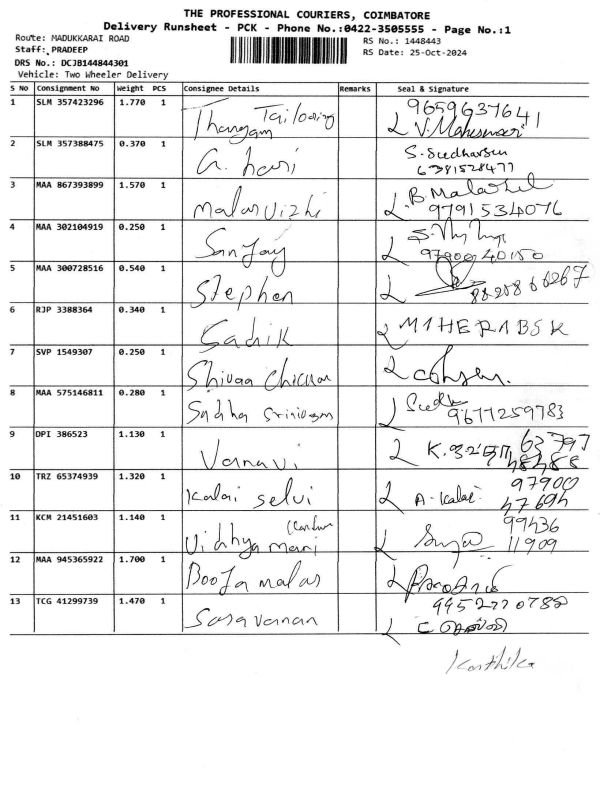 THE PROFESSIONAL COURIERS, COIMBATORE
Delivery Runsheet - PCK - Phone No.:0422-3505555 - Page No.:1
Route: MADUKKARAI ROAD
RS No.: 1448443
Staff: PRADEEP
RS Date: 25-Oct-2024
DRS No.: DCJB144844301
Vehicle: Two Wheeler Delivery
S No Consignment No Weight PCS Consignee Details Remarks Seal & Signature
1 SLM 357423296 1.770 1 Thangam Tailoring 9659637641
V. Maheswari
2 SLM 357388475 0.370 1 G. hari S. Sudharsan
6381528477
3 MAA 867393899 1.570 1 malarvizhi B. Malarvizhi
9791534076
4 MAA 302104919 0.250 1 Sanjay
5 MAA 300728516 0.540 1 Stephen
6 RJP 3388364 0.340 1 Sadik MAHERABSK
7 SVP 1549307 0.250 1 Shivaa
8 MAA 575146811 0.280 1 Sudha Srinivasan Sudha
9677259783
9 DPI 386523 1.130 1 Varnavi K. 63797
48488
10 TRZ 65374939 1.320 1 Kalai selvi 97900
A. Kalai 47694
11 KCM 21451603 1.140 1 Vidhya mani 99436
11909
12 MAA 945365922 1.700 1 Booja malar
13 TCG 41299739 1.470 1 Saravanan 9952770788
Karthika